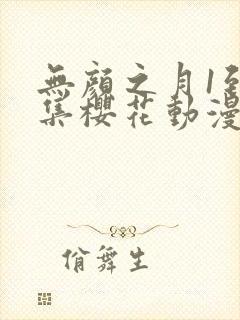 無顏之月1至
集櫻花動漫
俏舞生